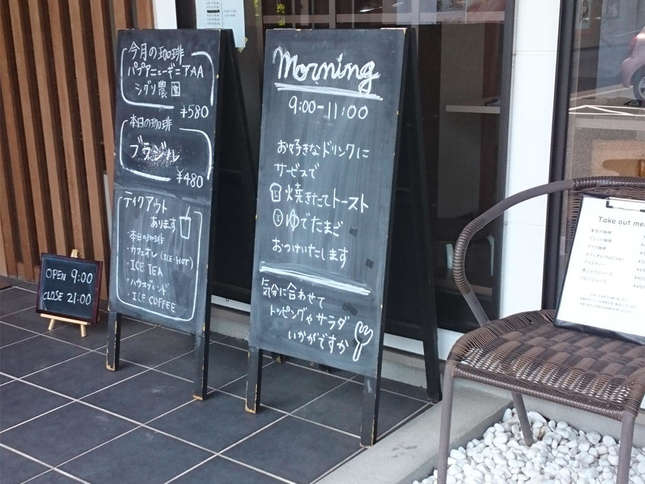 今月の珈琲
パプアニューギニアAA
シグリ農園
¥580
本日の珈琲
ブラジル
¥480
テイクアウト
あります
・本日の珈琲
・カフェオレ(ICE・HOT)
・ICE TEA
・ハウスブレンド
・ICE COFFEE
OPEN 9:00
CLOSE 21:00
Morning
9:00-11:00
お好きなドリンクに
サービスで
焼きたてトースト
ゆでたまご
おつけいたします
気分に合わせて
トッピングやサラダ
いかがですか
Take out me